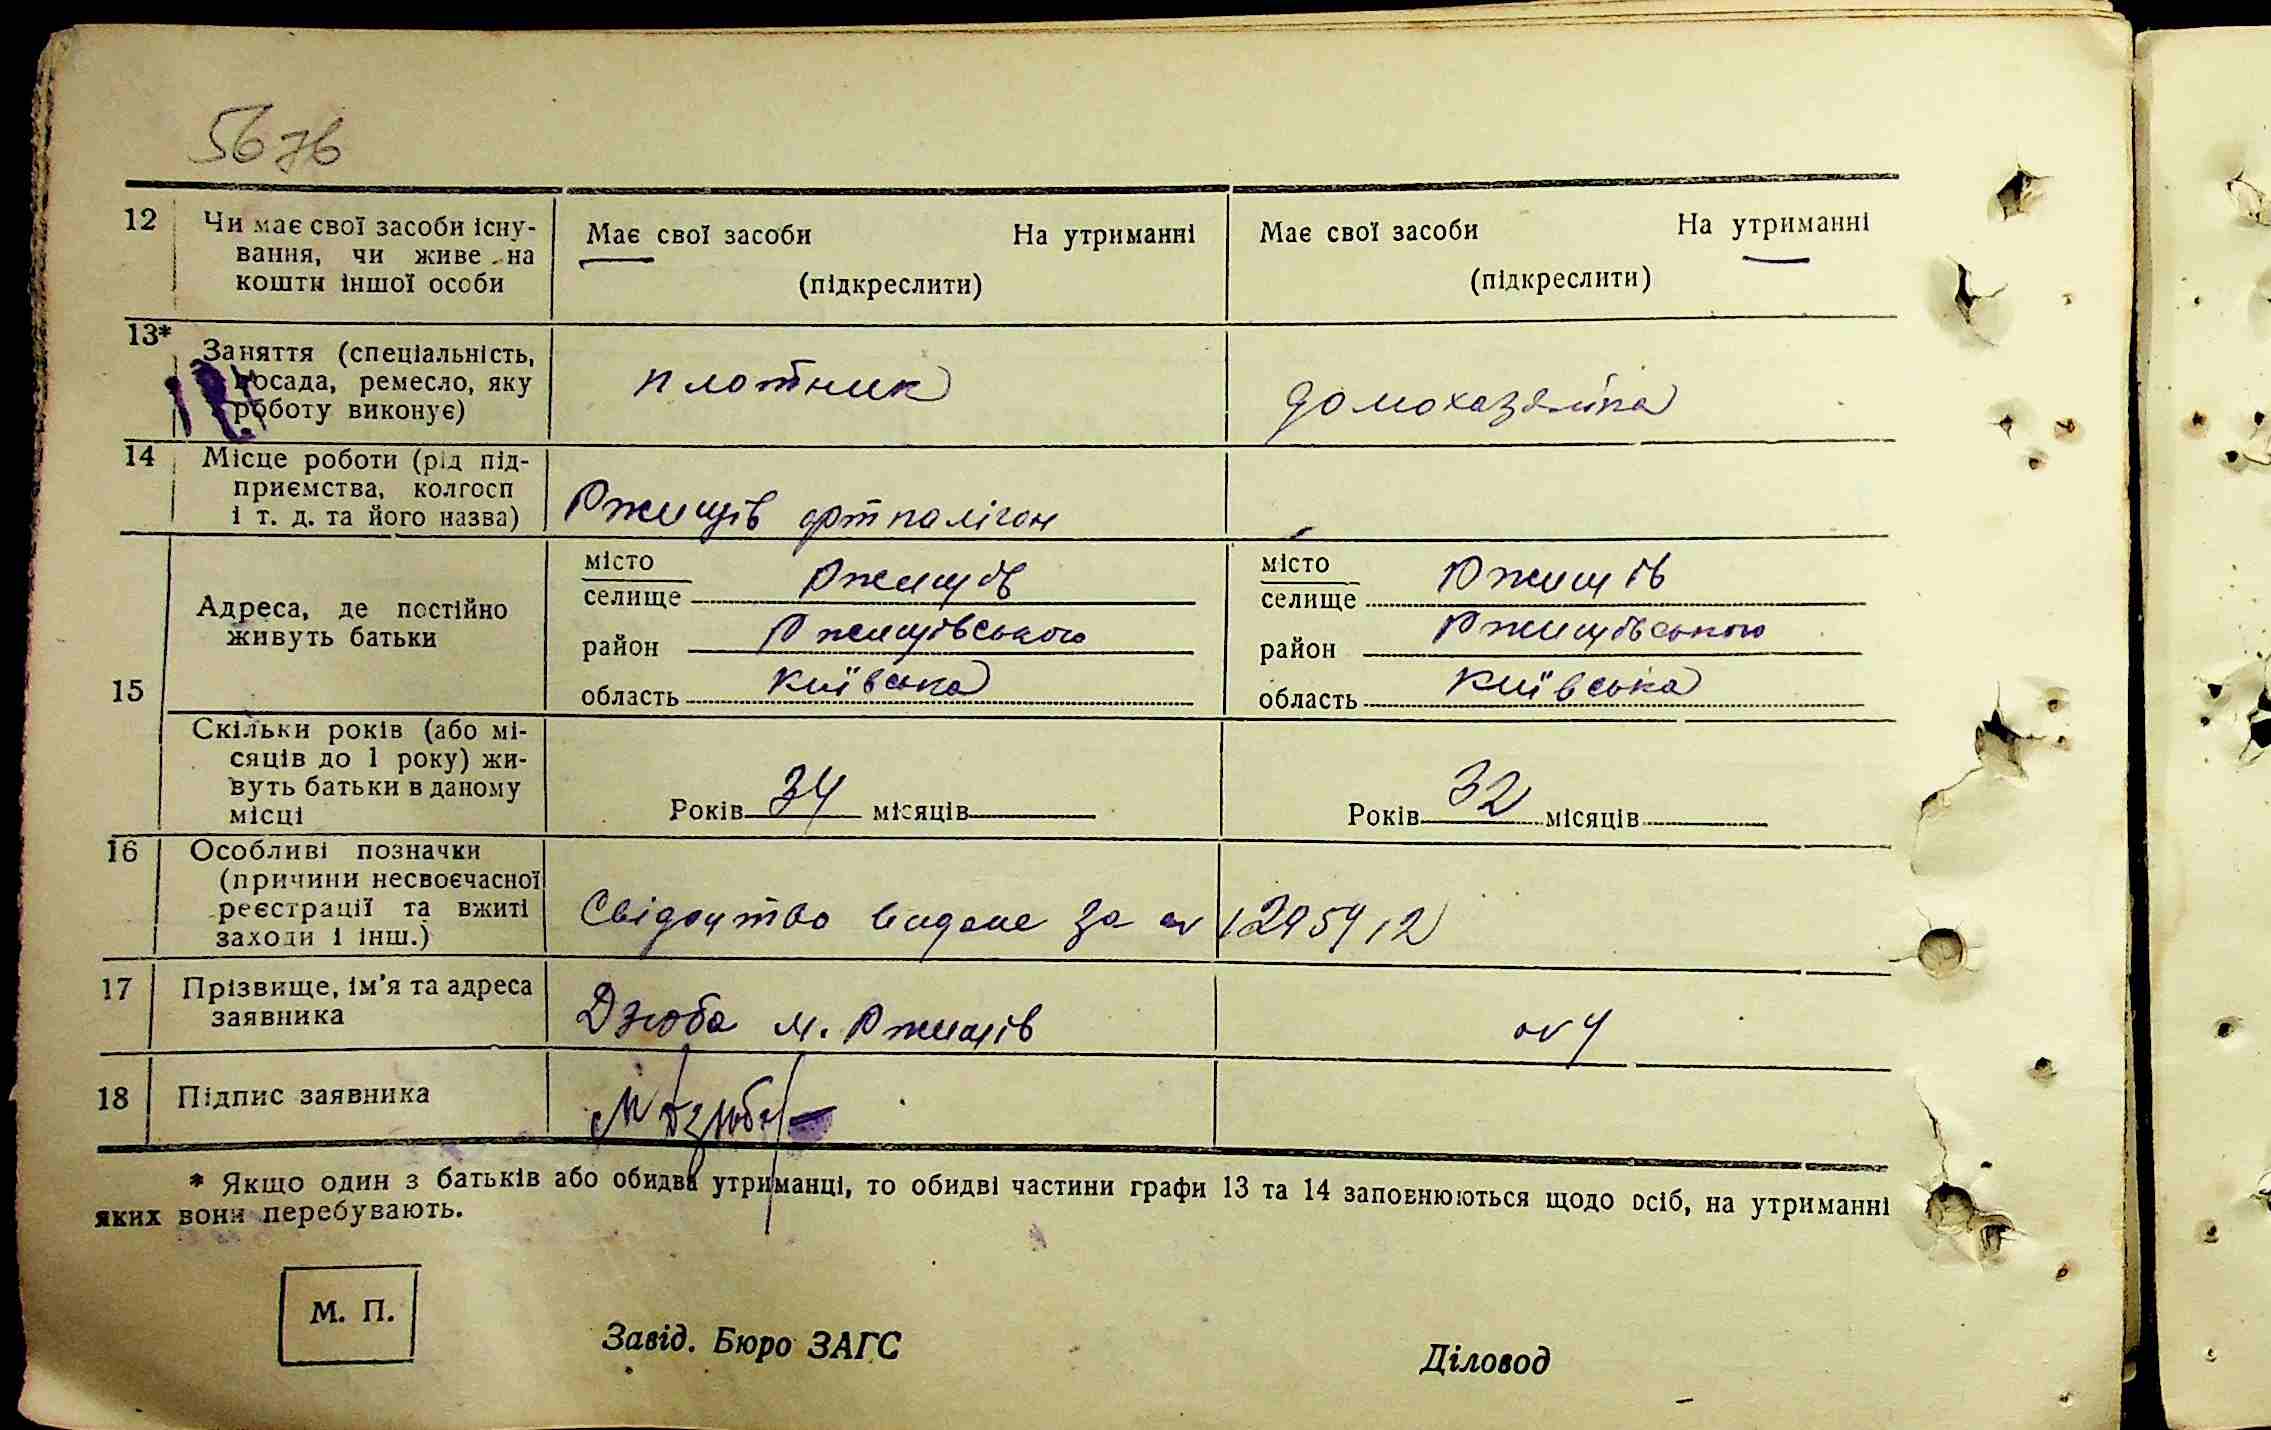 56 зв
12 Чи має свої засоби існу-
вання, чи живе на
кошти іншої особи
Має свої засоби На утриманні
(підкреслити)
Має свої засоби На утриманні
(підкреслити)
13*
Заняття (спеціальність,
посада, ремесло, яку
роботу виконує)
плотник
домохазяйка
14 Місце роботи (рід під-
приємства, колгосп
і т. д. та його назва)
Ржищів артполігон
15
Адреса, де постійно
живуть батьки
місто
селище Ржищів
район Ржищівського
область Київська
місто
селище Ржищів
район Ржищівського
область Київська
Скільки років (або мі-
сяців до 1 року) жи-
вуть батьки в даному
місці
Років 34 місяців
Років 32 місяців
16 Особливі позначки
(причини несвоєчасної
реєстрації та вжиті
заходи і інш.)
Свідоцтво видане за
17 Прізвище, ім'я та адреса
заявника
Дзюба м. Ржищів
18 Підпис заявника
М Дзюба
* Якщо один з батьків або обидва утриманці, то обидві частини графи 13 та 14 заповнюються щодо осіб, на утриманні
яких вони перебувають.
М. П.
Завід. Бюро ЗАГС
Діловод